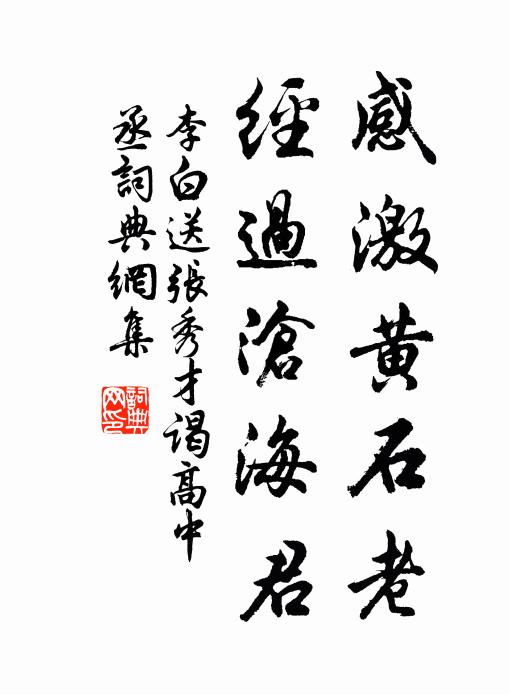 感激黄石老
經過滄海君
李白送張秀才謁高中
丞詞典網集
詞典
网印